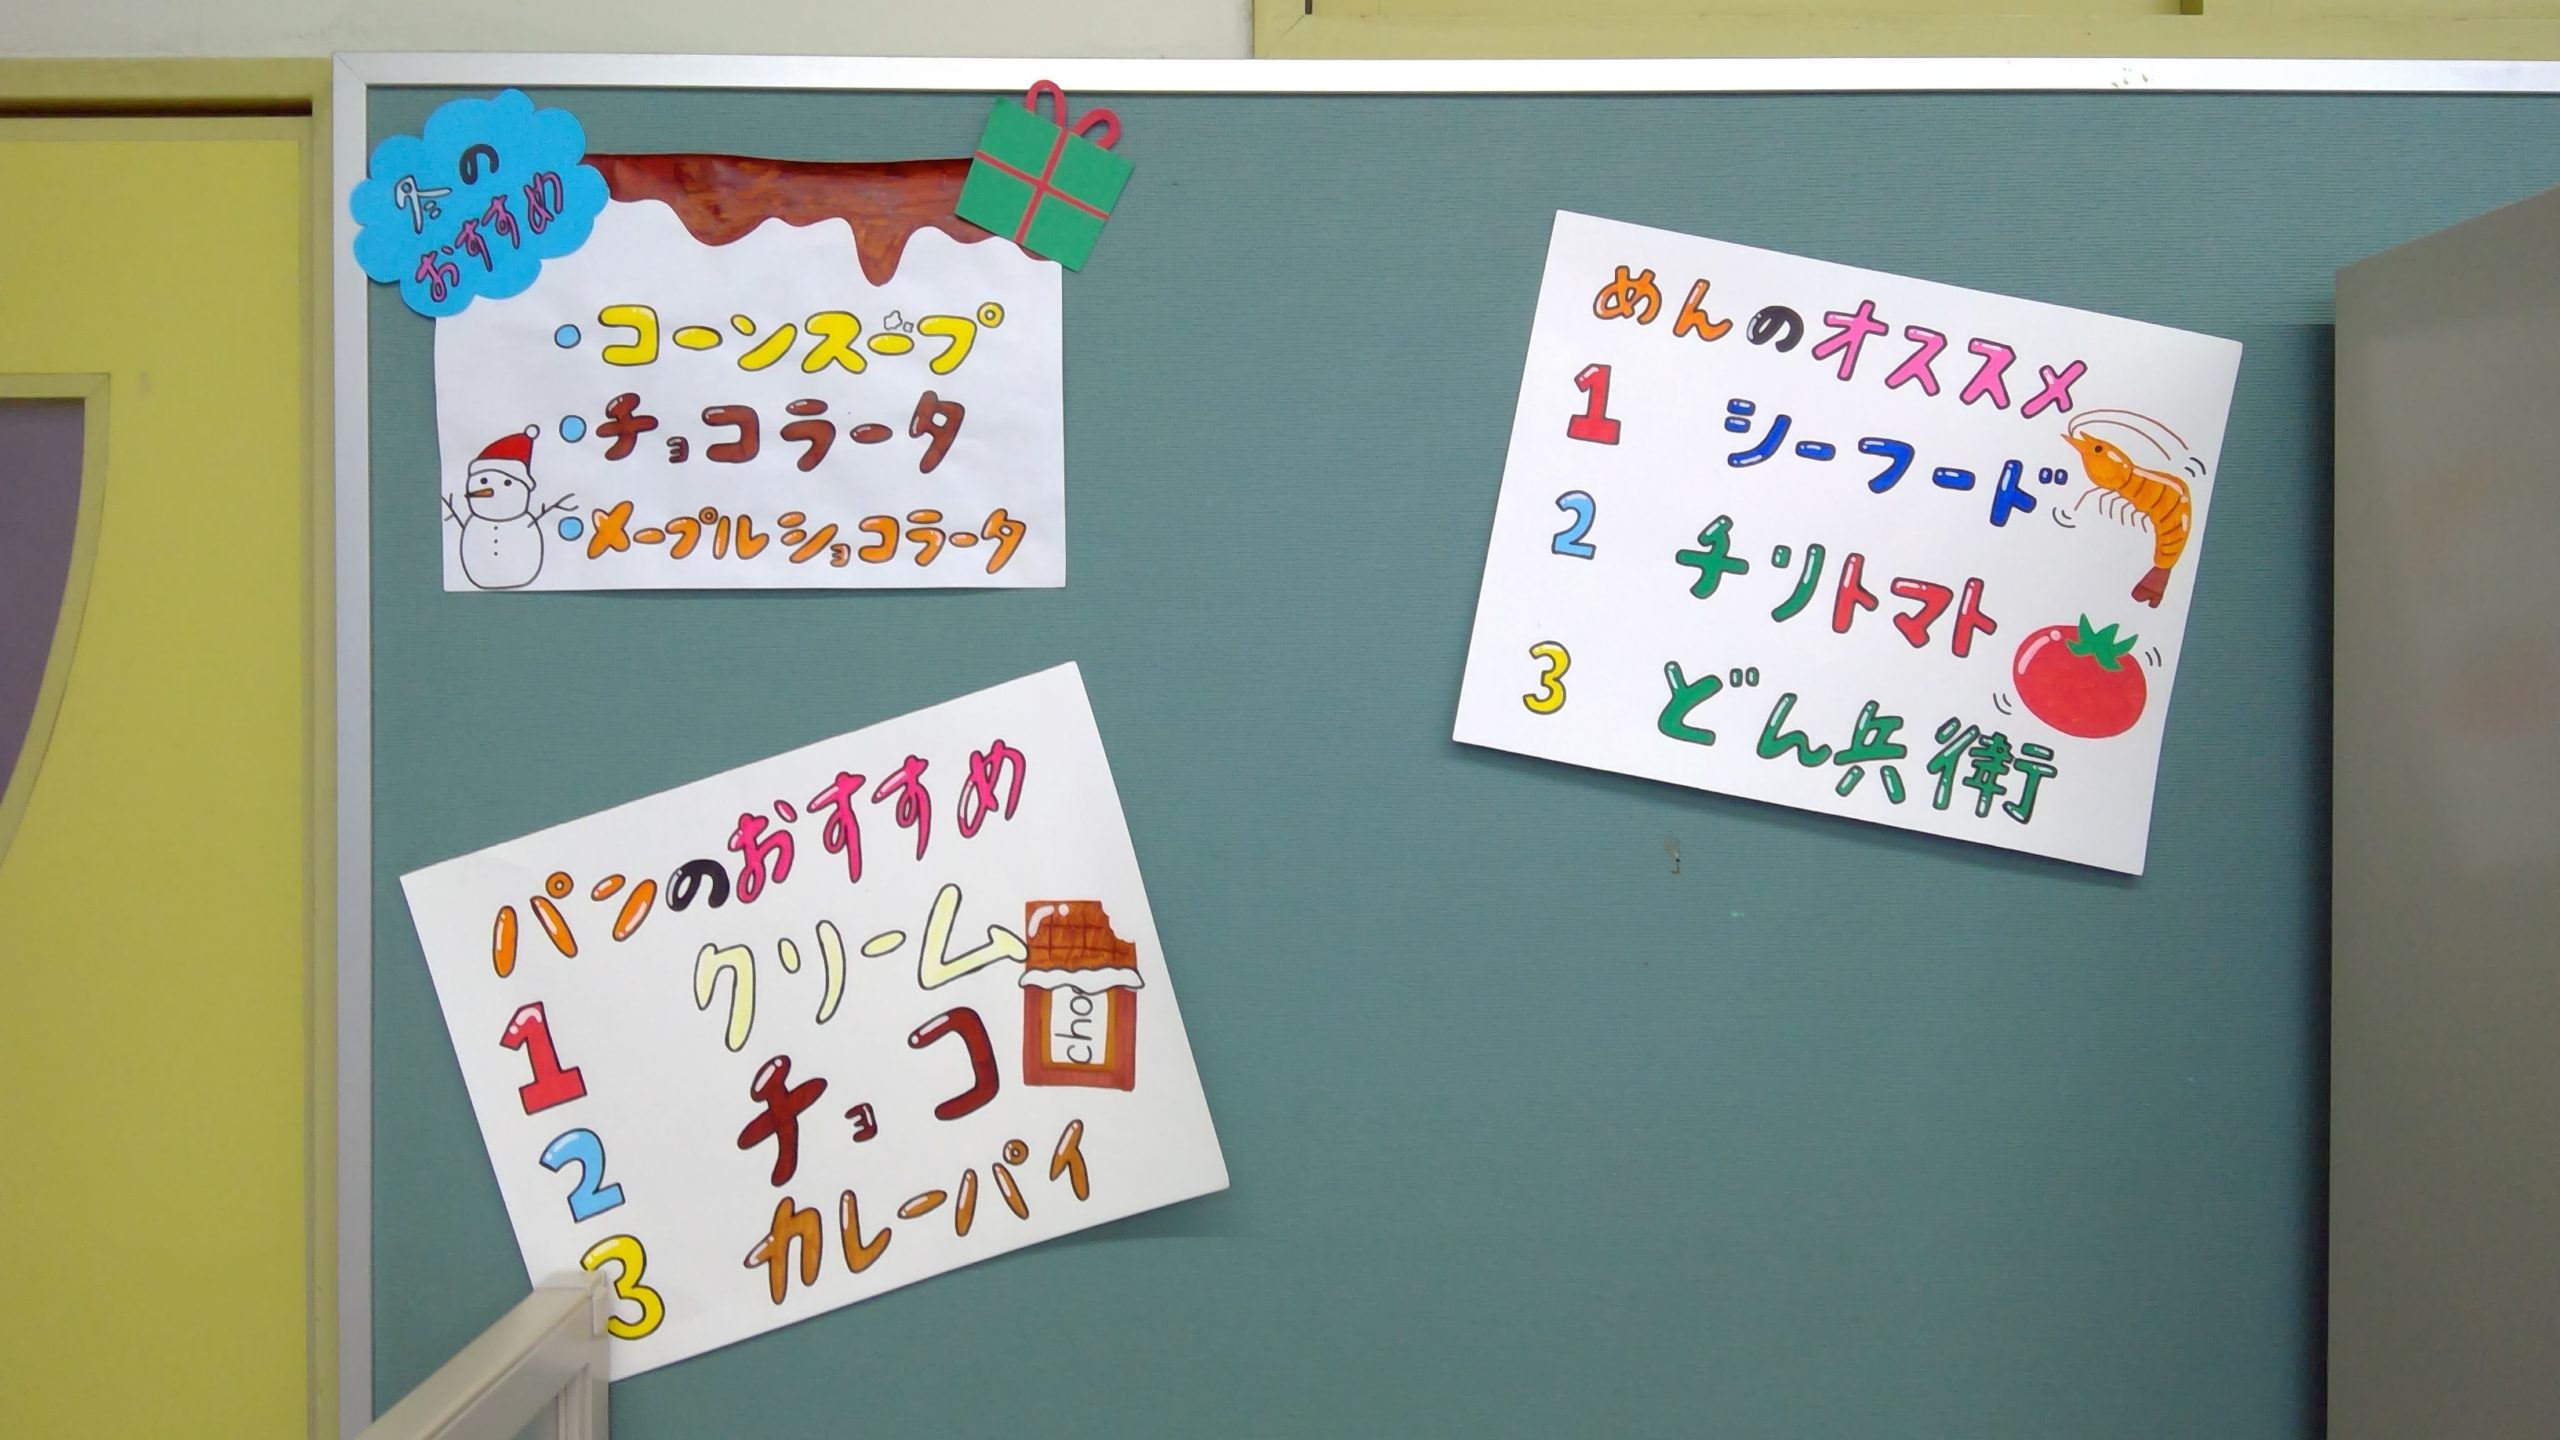 冬の
おすすめ
・コーンスープ
・チョコラータ
・メープルショコラータ
めんのオススメ
1 シーフード
2 チリトマト
3 どん兵衛
パンのおすすめ
1 クリーム
2 チョコ
3 カレーパイ
cho